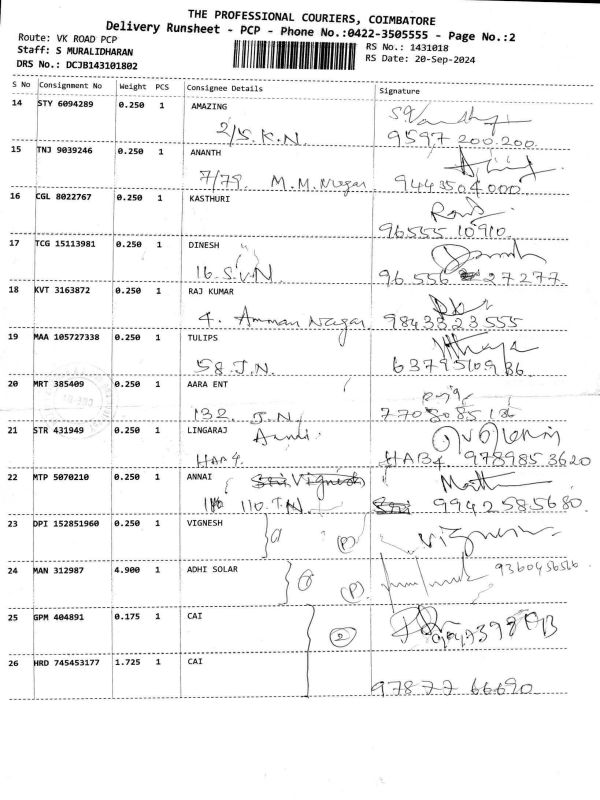 THE PROFESSIONAL COURIERS, COIMBATORE
Delivery Runsheet - PCP - Phone No.:0422-3505555 - Page No.:2
Route: VK ROAD PCP
RS No.: 1431018
Staff: S MURALIDHARAN
RS Date: 20-Sep-2024
DRS No.: DCJB143101802
S No Consignment No Weight PCS Consignee Details Signature
14 STY 6094289 0.250 1 AMAZING
2/5.K.N. 9597 200.200.
15 TNJ 9039246 0.250 1 ANANTH
7/79. M.M.Nagar. 9443504000
16 CGL 8022767 0.250 1 KASTHURI
96555 10910
17 TCG 15113981 0.250 1 DINESH
16.S.V.N. 96.556 27277
18 KVT 3163872 0.250 1 RAJ KUMAR
4. Amman Nagar. 9843323555
19 MAA 105727338 0.250 1 TULIPS
58.J.N. 6379510936
20 MRT 385409 0.250 1 AARA ENT
132. J.N.
21 STR 431949 0.250 1 LINGARAJ
HAB4. HAB4 9789853620
22 MTP 5070210 0.250 1 ANNAI
110.J.N. 9942585680
23 DPI 152851960 0.250 1 VIGNESH
(P)
24 MAN 312987 4.900 1 ADHI SOLAR
(P). 9360456516
25 GPM 404891 0.175 1 CAI
2
26 HRD 745453177 1.725 1 CAI
97877 66690